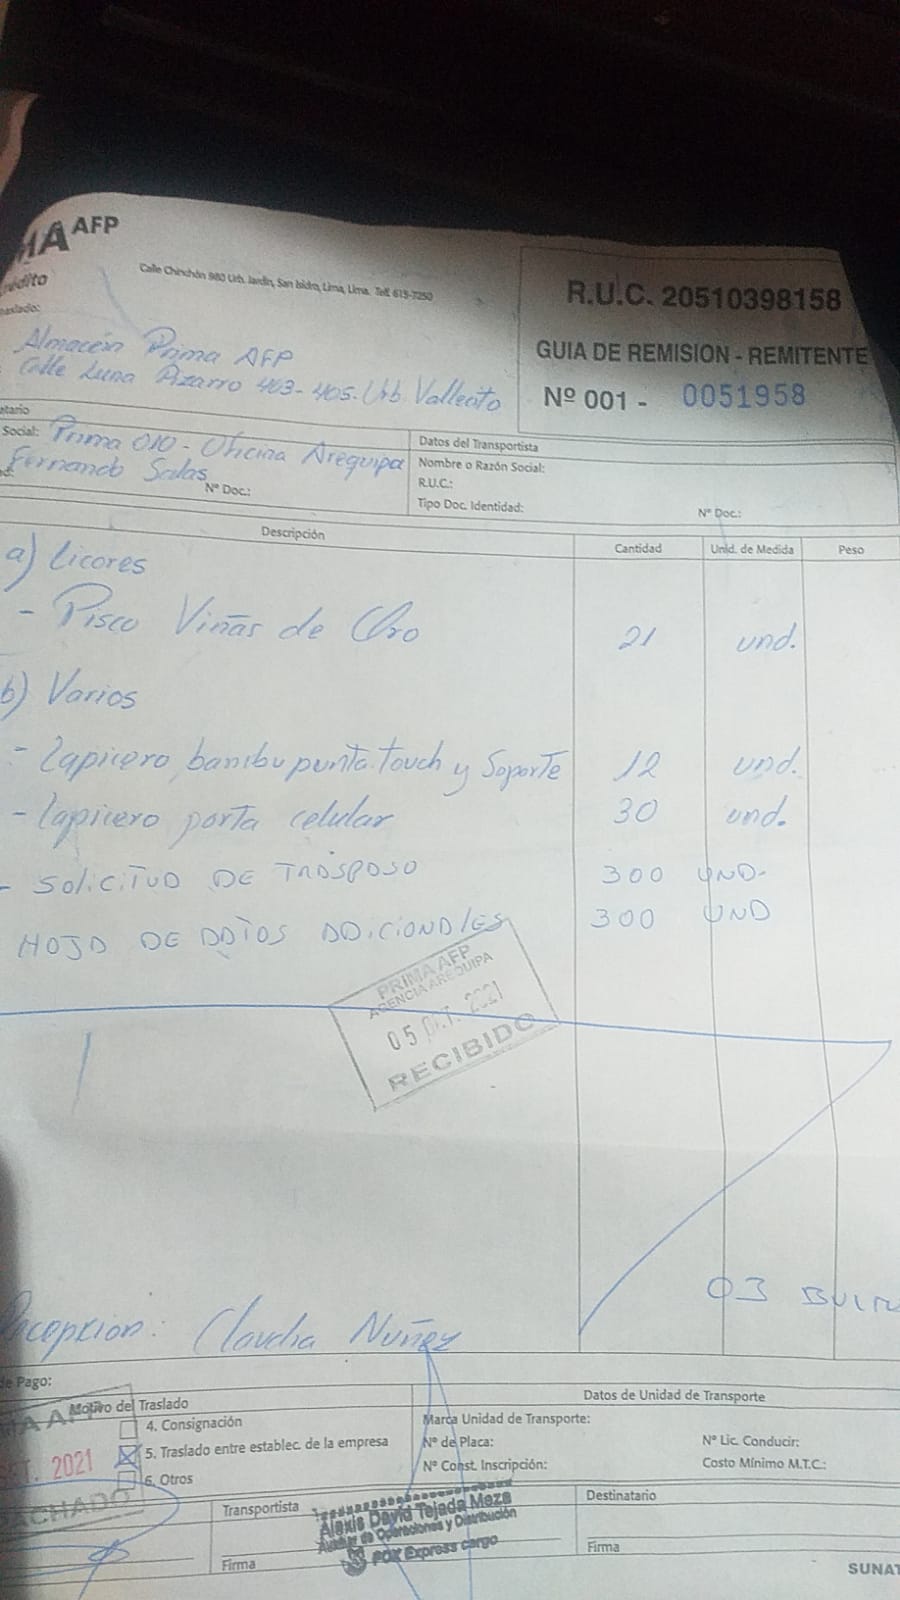 MA AFP
rédito
Calle Chinchón 980 Urb. Jardín, San Isidro, Lima, Lima. Telf. 615-7250
R.U.C. 20510398158
GUIA DE REMISION - REMITENTE
Nº 001 - 0051958
raslado:
Almacén Prima AFP
Calle Luna Pizarro 403-405-Urb. Vallecito
atario
Social: Prima 010 - Oficina Arequipa
Fernando Salas
Nº Doc.:
Datos del Transportista
Nombre o Razón Social:
R.U.C.:
Tipo Doc. Identidad:
Nº Doc.:
Descripción Cantidad Unid. de Medida Peso
a) Licores
- Pisco Viñas de Oro 21 und.
b) Varios
- Lapicero bambu punta touch y Soporte 12 und.
- Lapicero porta celular 30 und.
- SOLICITUD DE TRASPASO 300 UND.
HOJA DE DATOS ADICIONALES 300 UND
PRIMA AFP
AGENCIA AREQUIPA
05 OCT. 2021
RECIBIDO
03
Recepcion: Claudia Nuñez
de Pago:
Motivo del Traslado
4. Consignación
5. Traslado entre establec. de la empresa
6. Otros
MA AFP
T. 2021
ACHADO
Datos de Unidad de Transporte
Marca Unidad de Transporte:
Nº de Placa:
Nº Const. Inscripción:
Nº Lic. Conducir:
Costo Mínimo M.T.C.:
Transportista
Alexis David Tejada Meza
Auxiliar de Operaciones y Distribución
FOX Express cargo
Firma
Destinatario
Firma
SUNAT